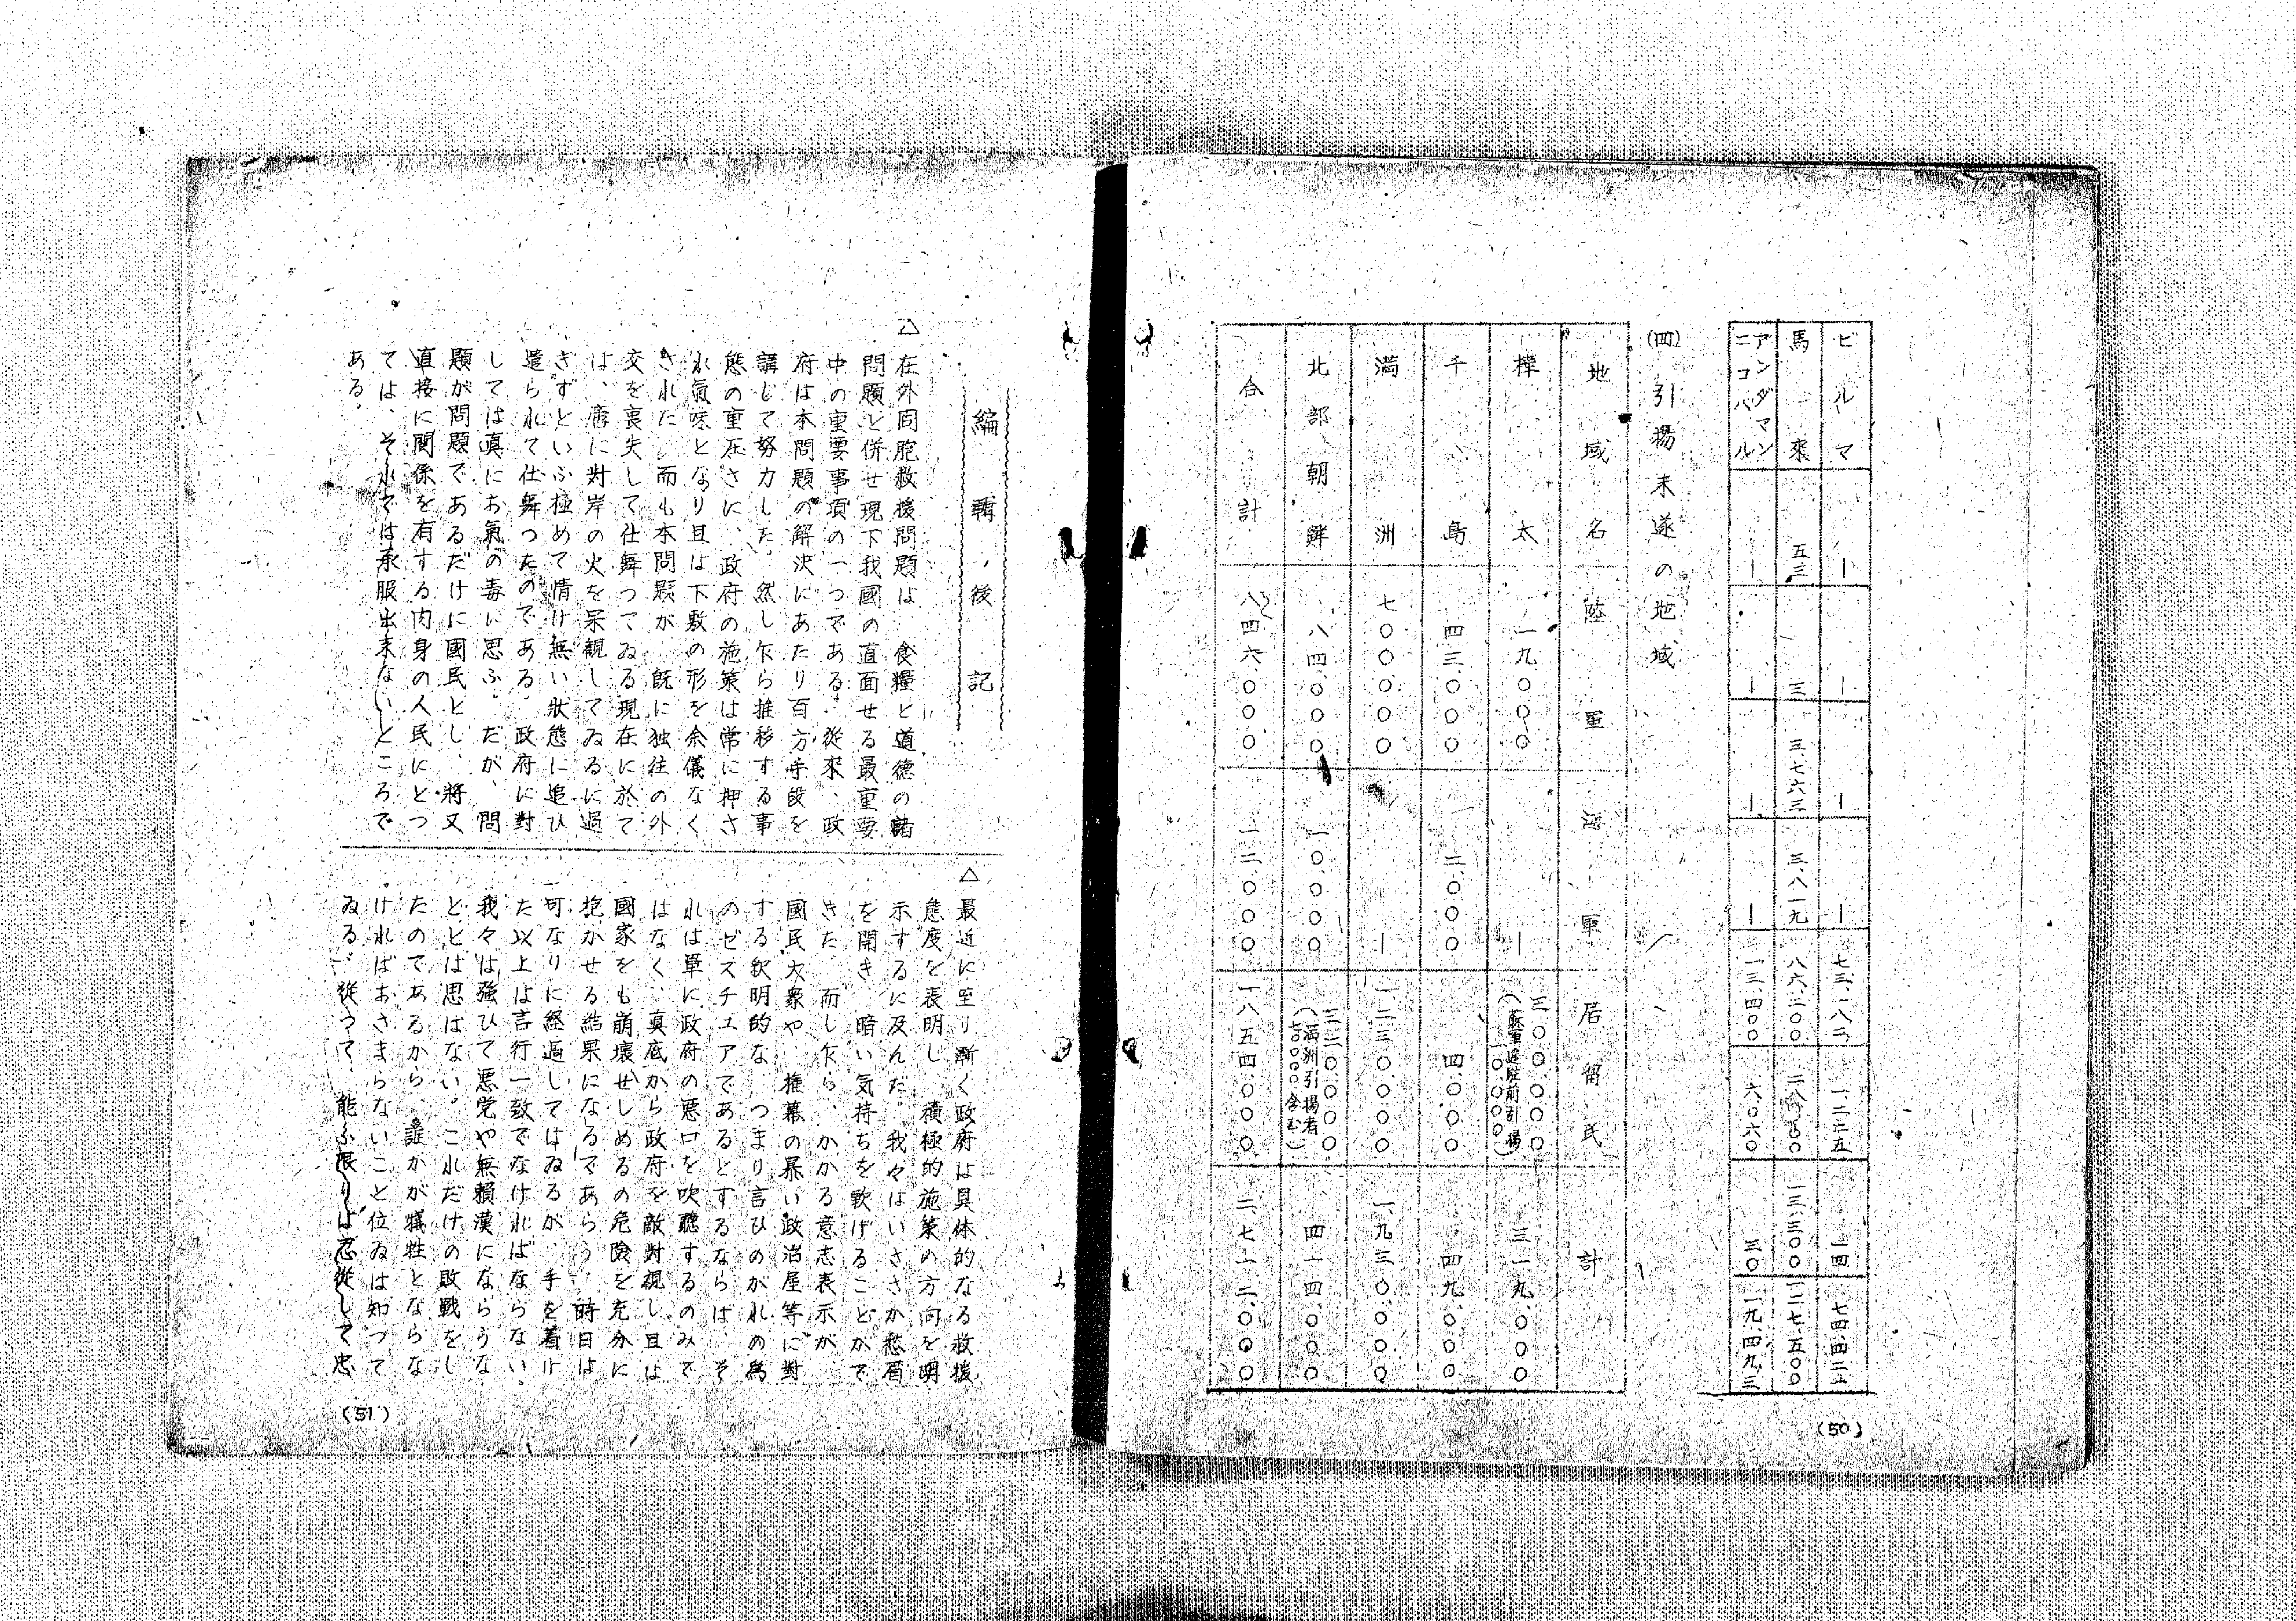 ビルマ ― ― ― ― 七三、一八二 一、二二五 一四 七四、四二一
馬來 五三 三 三、七六三 三、八一九 八六、二〇〇 二八、〇〇〇 一三、三〇〇 一二七、五〇〇
アンダマン
ニコバル ― ― ― ― 一三、四〇〇 六、〇六〇 三〇 一九、四九三
(四) 引揚未遂の地域
地域名 陸軍 海軍 居留民 計
樺太 一九、〇〇〇 ― 三〇〇、〇〇〇
(蘇軍進駐前引揚
一〇、〇〇〇) 三一九、〇〇〇
千島 四三、〇〇〇 二、〇〇〇 四、〇〇〇 四九、〇〇〇
満洲 七〇〇、〇〇〇 ― 一、二三〇、〇〇〇 一、九三〇、〇〇〇
北部朝鮮 八四、〇〇〇 一〇、〇〇〇 三二〇、〇〇〇
(満洲引揚者
七〇、〇〇〇含む) 四一四、〇〇〇
合計 八四六、〇〇〇 一二、〇〇〇 一、八五四、〇〇〇 二、七一二、〇〇〇
(50)
編輯後記
△
在外同胞救援問題は、食糧と道德の諸
問題と併せ現下我國の直面せる最重要
中の重要事項の一つである。從來、政
府は本問題の解決にあたり百方手段を
講じて努力した。然し乍ら推移する事
態の重圧さに、政府の施策は常に押さ
れ氣味となり且は下敷の形を余儀なく
された。而も本問題が、既に独往の外
交を喪失して仕舞つてゐる現在に於て
は、徒に対岸の火を呆観してゐるに過
ぎずといふ極めて情け無い狀態に追ひ
遣られて仕舞つたのである。政府に對
しては眞にお氣の毒に思ふ。だが、問
題が問題であるだけに國民とし、將又
直接に関係を有する肉身の人民にとつ
ては、それでは承服出来ないところで
ある。
△
最近に至り漸く政府は具体的なる救援
態度を表明し、積極的施策の方向を明
示するに及んだ。我々はいささか愁眉
を開き、暗い気持ちを軟げることがで
きた。而し乍ら、かかる意志表示が
國民大衆や、推幕の暴い政治屋等に對
する釈明的な、つまり言ひのがれの為
のゼスチユアであるとするならば、そ
れは単に政府の悪口を吹聽するのみで
はなく、真底から政府を敵対視し且は
國家をも崩壊せしめるの危険を充分に
抱かせる結果になるであらう。時日は
可なりに経過してはゐるが、手を着け
た以上は言行一致でなければならない。
我々は強ひて悪党や無賴漢にならうな
どとは思はない。これだけの敗戦をし
たのであるから、誰かが犠牲とならな
ければおさまらないこと位ゐは知つて
ゐる。従つて、能ふ限りは忍従して忠
(51)